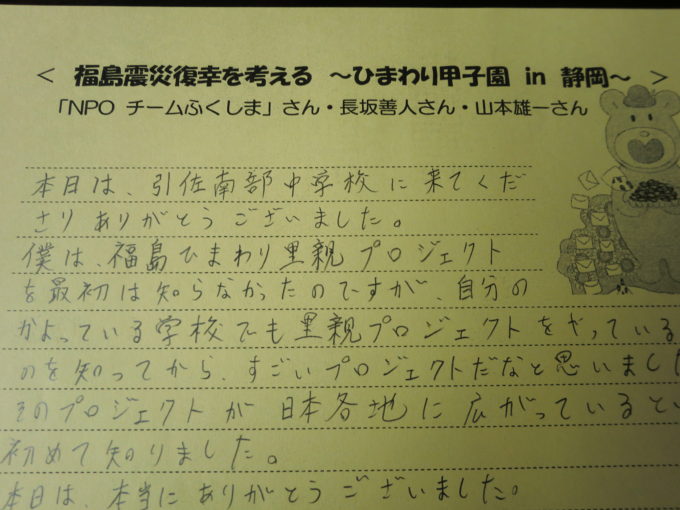 ＜ 福島震災復幸を考える ～ひまわり甲子園 in 静岡～ ＞
「NPO チームふくしま」さん・長坂善人さん・山本雄一さん
本日は、引佐南部中学校に来てくだ
さりありがとうございました。
僕は、福島ひまわり里親プロジェクト
を最初は知らなかったのですが、自分の
かよっている学校でも里親プロジェクトをやっている
のを知ってから、すごいプロジェクトだなと思いまし
そのプロジェクトが日本各地に広がっていると
初めて知りました。
本日は、本当にありがとうございました。